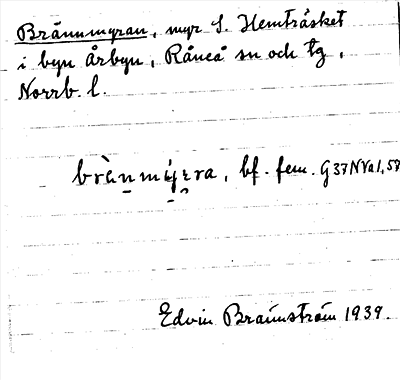 Brännmyran, myr S. Hemträsket
i byn Årbyn, Råneå sn och tg,
Norrb. l.
brànmýra, bf. fem. G37NVa1,57
Edvin Brännström 1939.